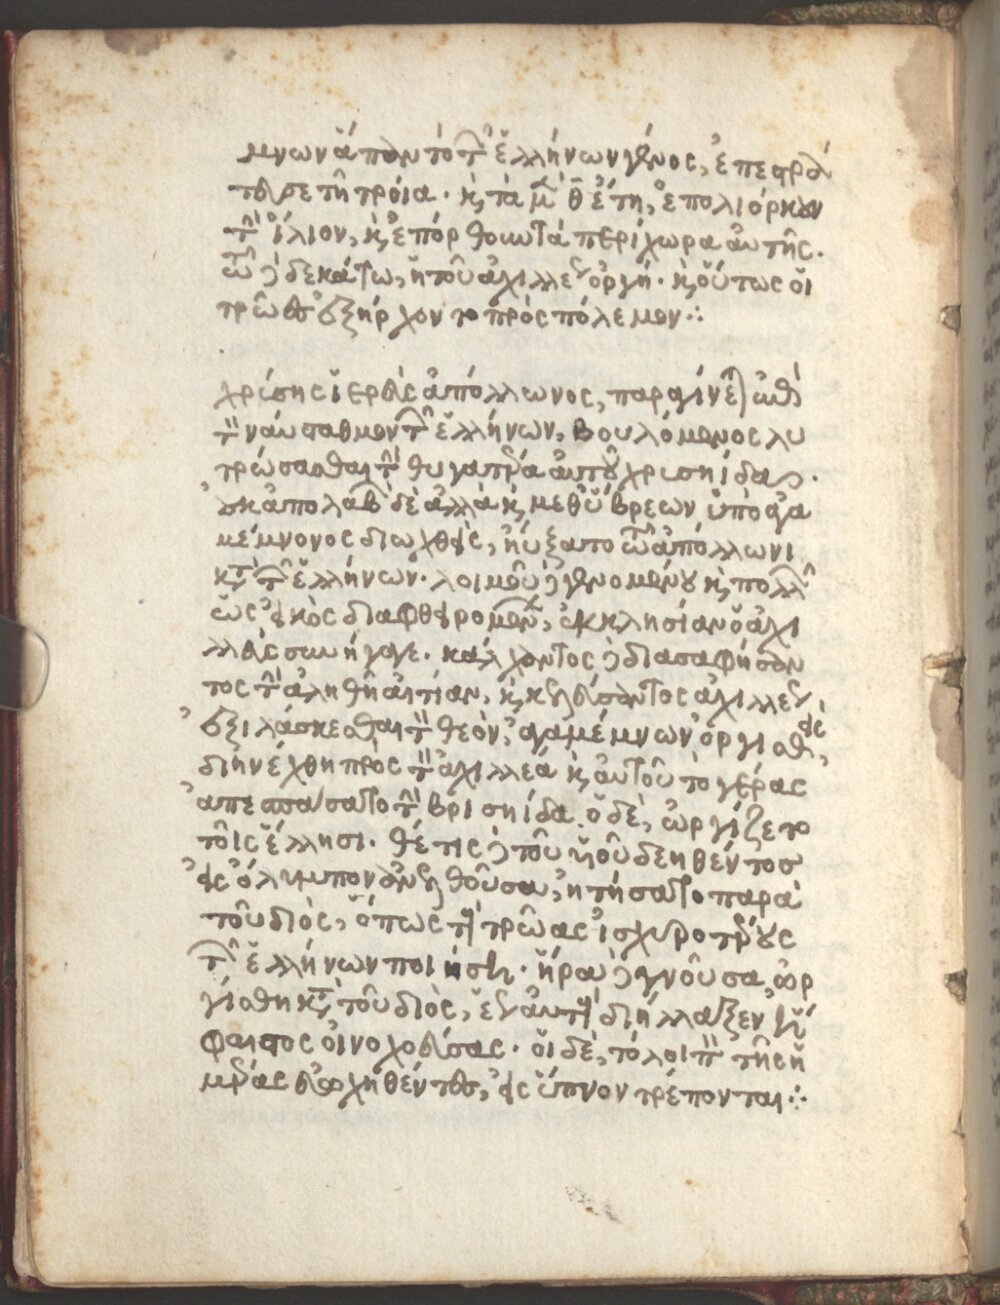 μνων ἅπαν τὸ τῶν ἑλλήνων γένος, ἐπεστρά
τευσε τῇ τροία. κ τὰ μὲν θ ἔτη, ἐπολιόρκουν
τὴν ἴλιον, κ ἐπόρθουν τὰ περίχωρα αὐτῆς.
τῶ δὲ δεκάτω, ἡ τοῦ ἀχιλλέως ὀργή. κ οὕτως οἱ
τρῶες ἐξήρχοντο πρὸς πόλεμον ∴
χρύσης ἱερεὺς ἀπόλλωνος, παραγίνεται ἐπὶ
τὸν ναύσταθμον τῶν ἑλλήνων, βουλόμενος λυ
τρώσασθαι τὴν θυγατέρα αὐτοῦ χρισηίδα.
οὐκ ἀπολαβὼν δὲ ἀλλὰ κ μεθ ὕβρεων ὑπὸ ἀγα
μέμνονος διωχθεὶς, ηὔξατο τῶ ἀπόλλωνι
κατὰ τῶν ἑλλήνων. λοιμοῦ δὲ γενομένου κ πολλῶν
ὡς εἰκὸς διαφθειρομένων, ἐκκλησίαν ὁ ἀχι
λλεὺς συνήγαγε. κάλχοντος δὲ διασαφήσαν
τος τὴν ἀληθῆ αἰτίαν, κ κελεύσαντος ἀχιλλέως
ἐξιλάσκεσθαι τὸν θεὸν, ἀγαμέμνων ὀργισθεὶς,
διηνέχθη πρὸς τὸν ἀχιλλέα κ αὐτοῦ τὸ γέρας
ἀπεσπάσατο τὴν βρισηίδα. ὁ δὲ, ὠργίζετο
τοῖς ἕλλησι. θέτις δὲ τοῦ υἱοῦ δεηθέντος
εἰς ὄλυμπον ἀνελθοῦσα, ἠτήσατο παρὰ
τοῦ διὸς, ὅπως τοὺς τρῶας ἰσχυροτέρους
τῶν ἑλλήνων ποιήσῃ. ἥρα δὲ γνοῦσα, ὠρ
γίσθη κατὰ τοῦ διὸς, ἕως αὐτοὺς διήλλαξεν ἥ
φαιστος οἰνοχοεύσας. οἱ δὲ, τὸ λοιπὸν τῆς ἡ
μέρας εὐωχηθέντες, εἰς ὕπνον τρέπονται ∴